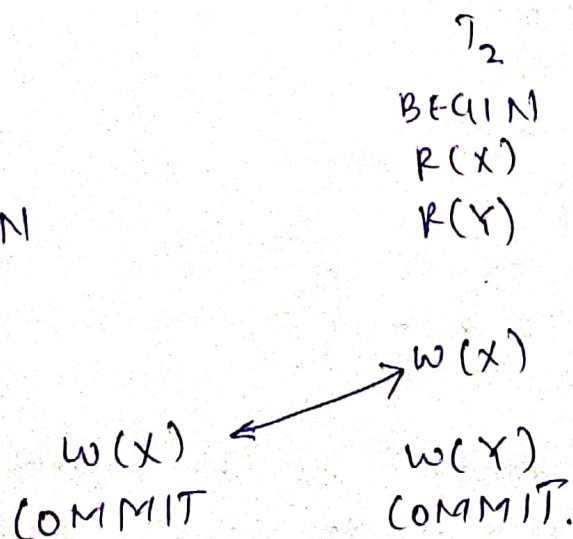 T2
BEGIN
R(X)
N R(Y)
W(X)
W(X) W(Y)
COMMIT COMMIT.